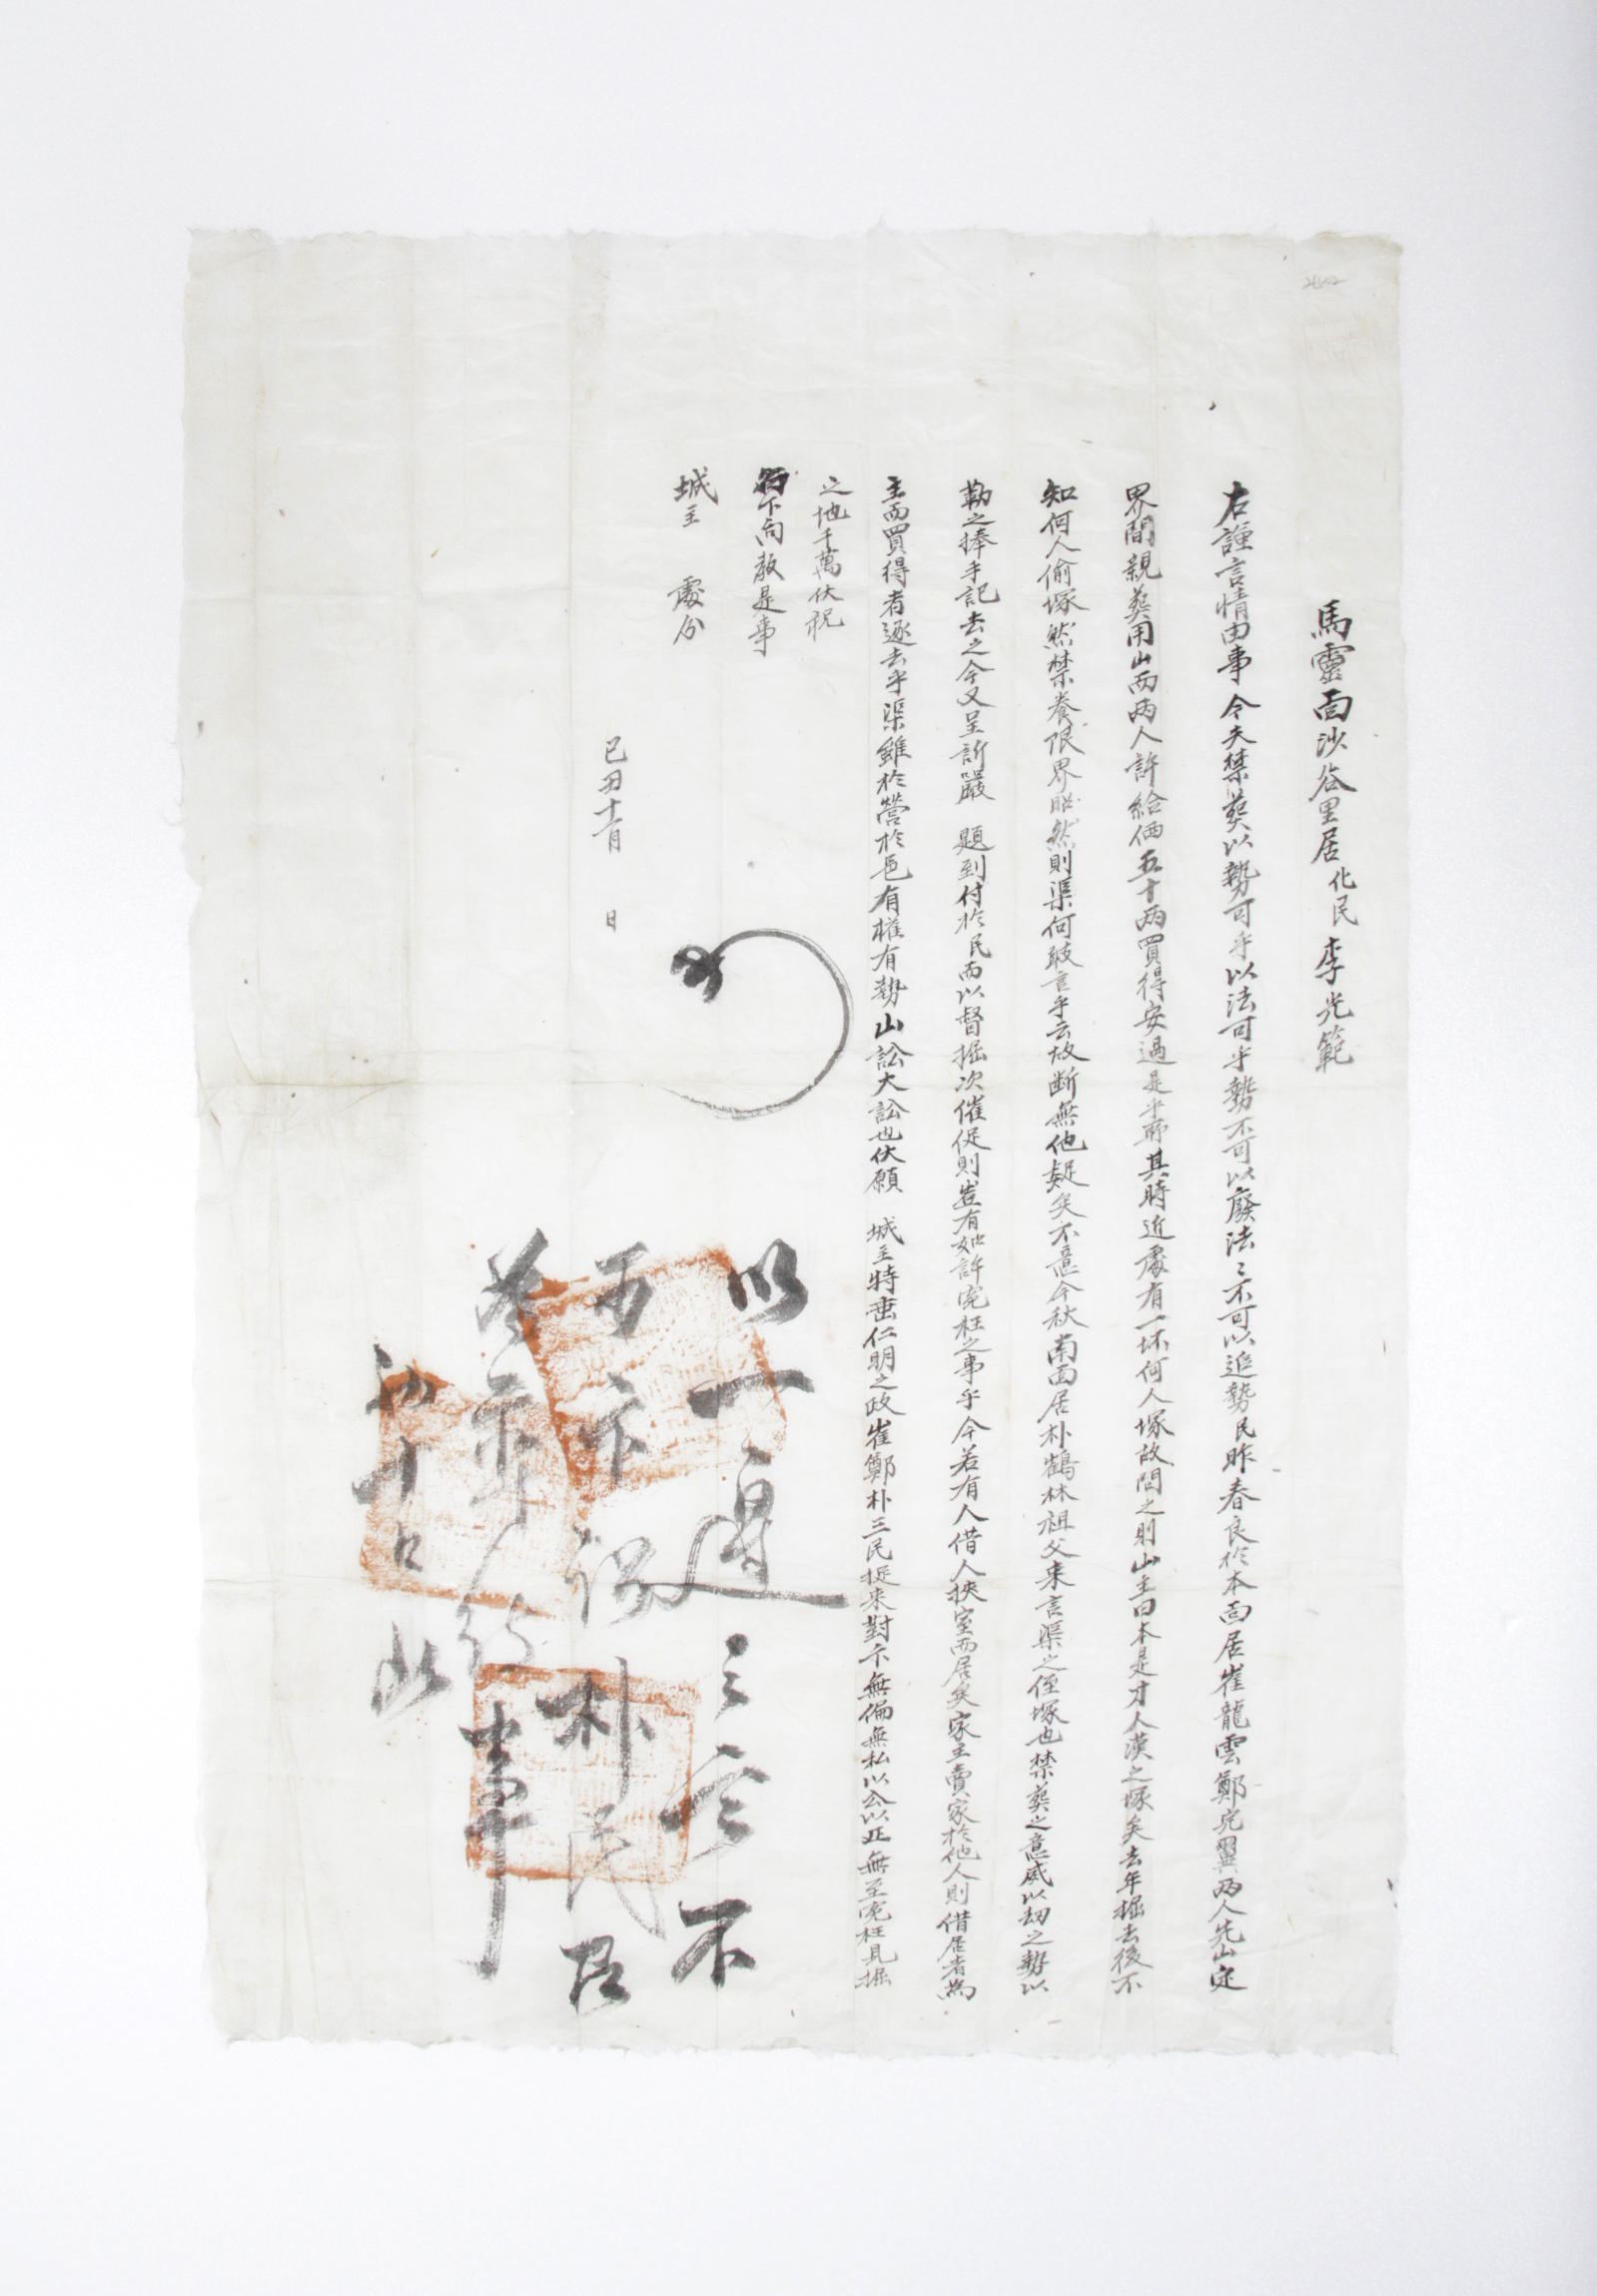 馬靈面沙谷里居化民李光範
右謹言情由事今夫禁葬以勢可乎以法可乎勢不可以廢法〻不可以追勢民昨春良於本面居崔龍雲鄭完翼兩人先山定
界間親葬用山而兩人許給価五十兩買得安過是乎所其時近處有一坏何人塚故問之則山主曰本是才人漢之塚矣去年掘去後不
知何人偷塚然禁養限界昭然則渠何敢言乎云故斷無他疑矣不意今秋南面居朴鶴林祖父來言渠之侄塚也禁葬之意威以刼之勢以
勒之捧手記去之今又呈訴嚴題到付於民而以督掘次催促則豈有如許寃枉之事乎今若有人借人挾室而居矣家主賣家於他人則借居者為
主而買得者逐去乎渠雖於營於邑有權有勢山訟大訟也伏願城主特垂仁明之政崔鄭朴三民捉來對卞無偏無私以公以正無至寃枉見掘
之地千萬伏祝
行下向教是事
城主處分
己丑十一月日
以一邊之言不
可卞決朴民居
事
初十日